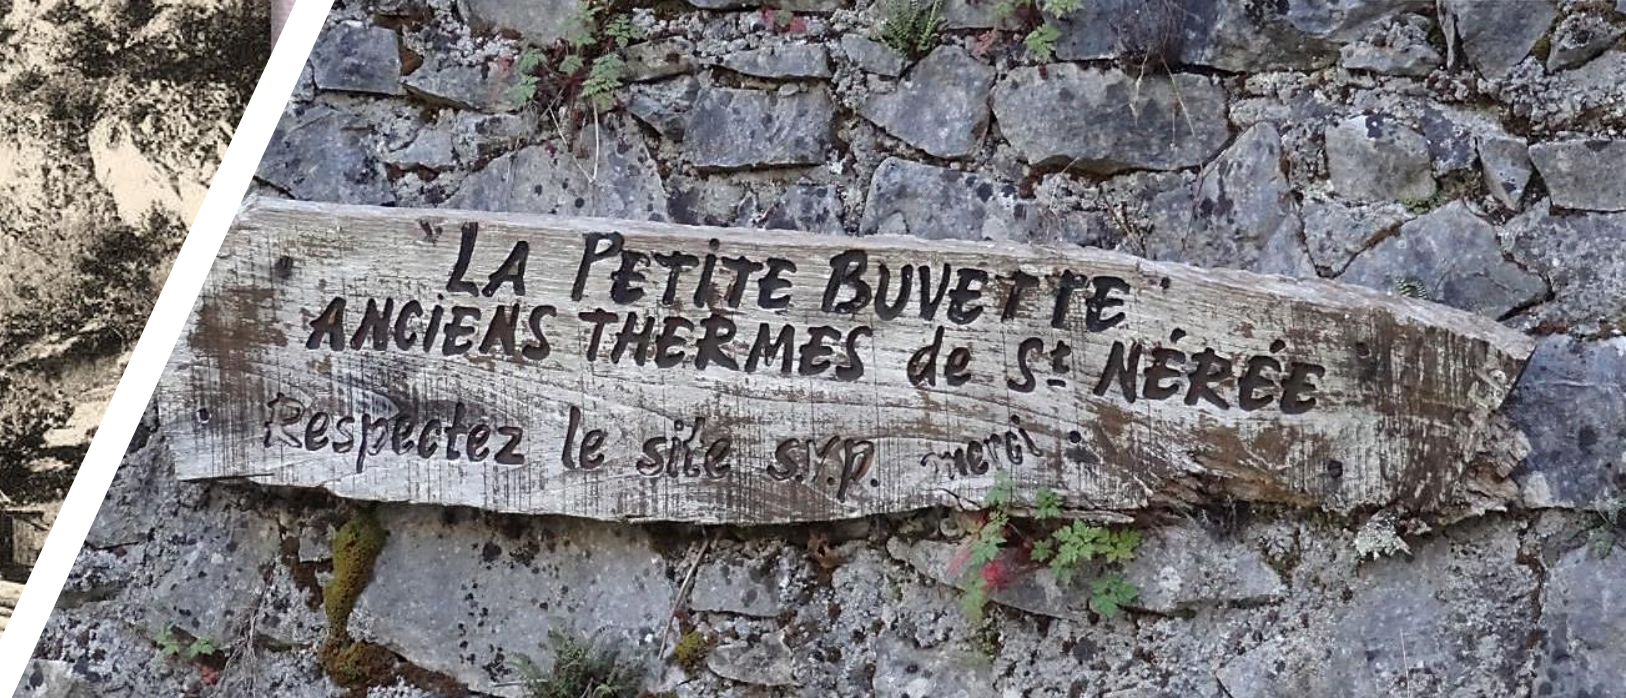 LA PETITE BUVETTE
ANCIENS THERMES de St NÉRÉE
Respectez le site s.v.p. merci